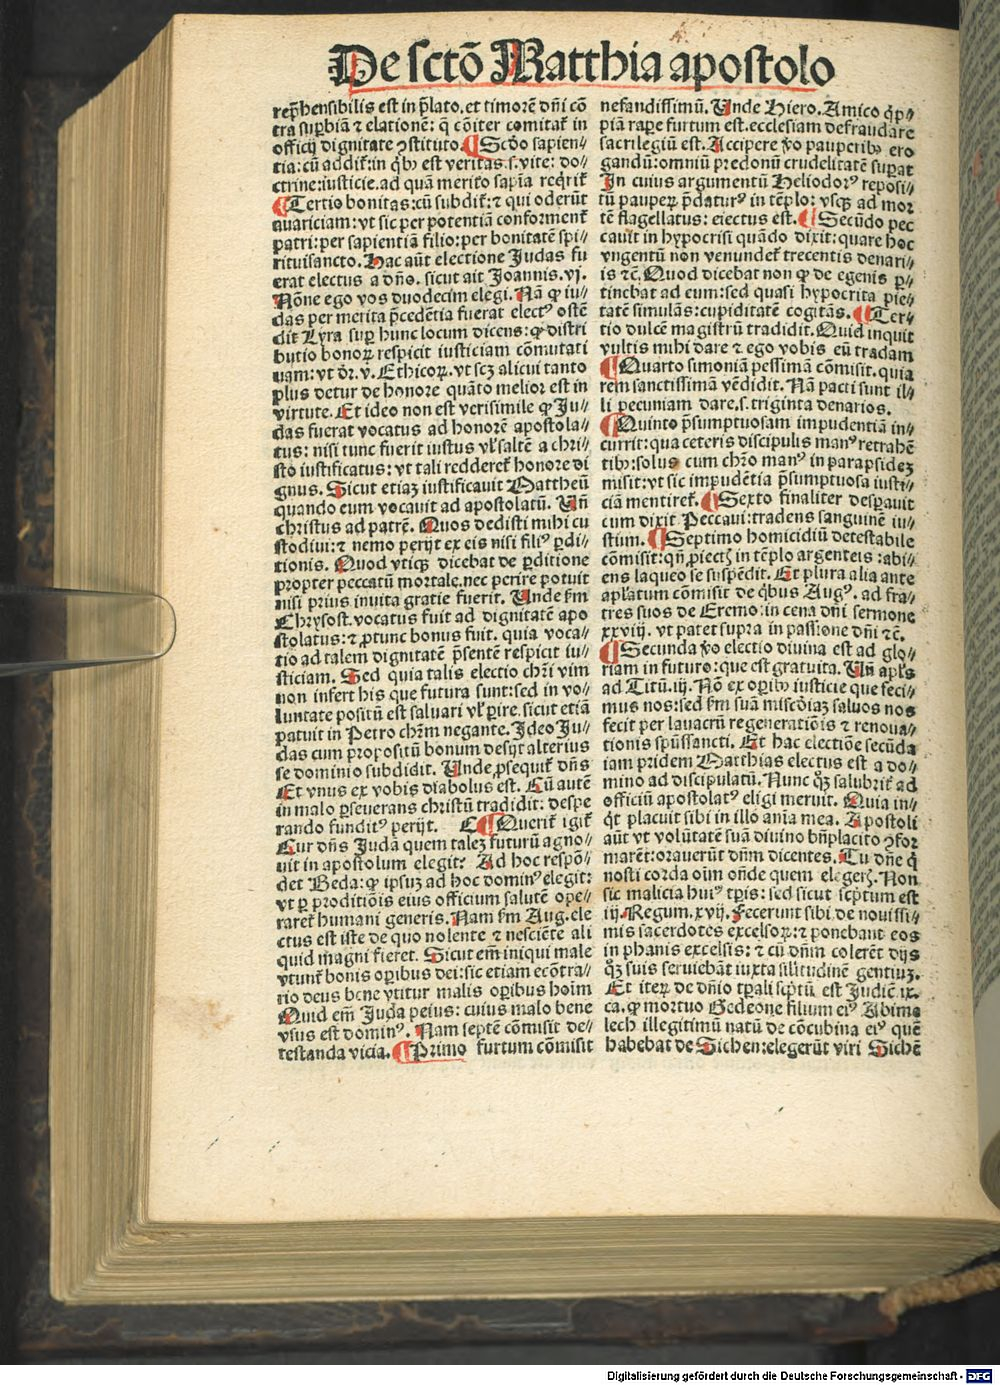 De sctō Matthia apostolo
rep̄hensibilis est in p̄lato. et timorē dn̄i cō
tra suꝑbiā ⁊ elationē: q̄ cōiter comitat̄ in
officij dignitate ꝯstituto. ¶ Scdo sapien⸗
tia: cū addit̄: in qͥbꝰ est veritas .s. vite: do⸗
ctrine: iusticie. ad quā merito sapīa reqͥrit̄
¶ Tertio bonitas: cū subdit̄: ⁊ qui oderūt
auariciam: vt sic per potentiā conforment̄
patri: per sapientiā filio: per bonitatē spi⸗
rituisancto. Hac aūt electione Judas fu
erat electus a dn̄o. sicut ait Joannis. vj.
Nōne ego vos duodecim elegi. Nā ꝙ iu⸗
das per merita p̄cedētia fuerat electꝰ ostē
dit Lyra suꝑ hunc locum dicens: ꝙ distri
butio bonoꝝ respicit iusticiam cōmutati
uam: vt dr̄. v. Ethicoꝝ. vt scꝫ alicui tanto
plus detur de honore quāto melior est in
virtute. Et ideo non est verisimile ꝙ Ju⸗
das fuerat vocatus ad honorē apostola⸗
tus: nisi tunc fuerit iustus vl̓ saltē a chri⸗
sto iustificatus: vt tali redderet̄ honore di
gnus. Sicut etiaꝫ iustificauit Mattheū
quando eum vocauit ad apostolatū. Un̄
christus ad patrē. Quos dedisti mihi cu
stodiui: ⁊ nemo perijt ex eis nisi filiꝰ ꝑdi⸗
tionis. Quod vtiqꝫ dicebat de ꝑditione
propter peccatū mortale. nec perire potuit
nisi prius in vita gratie fuerit. Unde ẜm
Chrysost. vocatus fuit ad dignitatē apo
stolatus: ⁊ ꝓ tunc bonus fuit. quia voca⸗
tio ad talem dignitatē p̄sentē respicit iu⸗
sticiam. Sed quia talis electio chr̄i vim
non infert his que futura sunt: sed in vo⸗
luntate positū est saluari vl̓ ꝑire. sicut etiā
patuit in Petro chr̄m negante. Ideo Ju⸗
das cum propositū bonum desijt alterius
se dominio subdidit. Unde ꝓsequit̄ dn̄s
Et vnus ex vobis diabolus est. Cū autē
in malo ꝑseuerans christū tradidit: despe
rando funditꝰ perijt. C ¶ Querit̄ igit̄
Cur dn̄s Judā quem taleꝫ futurū agno⸗
uit in apostolum elegit? Ad hoc respō⸗
det Beda: ꝙ ipsuꝫ ad hoc dominꝰ elegit:
vt ꝑ proditiōis eius officium salutē ope⸗
raret̄ humani generis. Nam ẜm Aug. ele
ctus est iste de quo nolente ⁊ nesciēte ali
quid magni fieret. Sicut em̄ iniqui male
vtunt̄ bonis oꝑibus dei: sic etiam ecōtra⸗
rio deus bene vtitur malis oꝑibus hoīm
Quid em̄ Juda peius: cuius malo bene
vsus est dominꝰ. Nam septē cōmisit de⸗
testanda vicia. ¶ Primo furtum cōmisit
nefandissimū. Unde Hiero. Amico qͥp⸗
piā raꝑe furtum est. ecclesiam defraudare
sacrilegiū est. Accipere v̄o pauperibꝰ ero
gandū: omniū p̄redonū crudelitatē suꝑat
In cuius argumentū Heliodorꝰ reposi⸗
tū pauperꝝ p̄daturꝰ in tēplo: vsqꝫ ad mor
tē flagellatus: eiectus est. ¶ Secūdo pec
cauit in hypocrisi quādo dixit: quare hoc
vngentū non venundet̄ trecentis denari⸗
is ⁊c̄. Quod dicebat non ꝙ de egenis ꝑ⸗
tinebat ad eum: sed quasi hypocrita pie⸗
tatē simulās: cupiditatē cogitās. ¶ Ter⸗
tio dulcē magistrū tradidit. Quid inquit
vultis mihi dare ⁊ ego vobis eū tradam
¶ Quarto simoniā pessimā cōmisit. quia
rem sanctissimā vēdidit. Nā pacti sunt il⸗
li pecuniam dare .s. triginta denarios.
¶ Quinto p̄sumptuosam impudentiā in⸗
currit: qua ceteris discipulis manꝰ retrahē
tibꝰ: solus cum chr̄o manꝰ in parapsideꝫ
misit: vt sic impudētia p̄sumptuosa iusti⸗
ciā mentiret̄. ¶ Sexto finaliter desꝑauit
cum dixit Peccaui: tradens sanguinē iu⸗
stum. ¶ Septimo homicidiū detestabile
cōmisit: qn̄ ꝓiectꝭ in tēplo argenteis: abi⸗
ens laqueo se suspēdit. Et plura alia ante
apl̄atum cōmisit de qͥbus Augꝰ. ad fra⸗
tres suos de Eremo: in cena dn̄i sermone
xxviij. vt patet supra in passione dn̄i ⁊c̄.
¶ Secunda v̄o electio diuina est ad glo⸗
riam in futuro: que est gratuita. Un̄ apl̄s
ad Titū. iij. Nō ex oꝑibꝰ iusticie que feci⸗
mus nos: sed ẜm suā miscd̄iaꝫ saluos nos
fecit per lauacrū regeneratiōis ⁊ renoua⸗
tionis spūssancti. Et hac electiōe secūda
iam pridem Matthias electus est a do⸗
mino ad discipulatū. Nunc qͥꝫ salubrit̄ ad
officiū apostolatꝰ eligi meruit. Quia in⸗
qͥt placuit sibi in illo anīa mea. Apostoli
aūt vt volūtatē suā diuino bn̄placito ꝯfor
marēt: orauerūt dn̄m dicentes. Tu dn̄e qͥ
nosti corda oīm ostēde quem elegerꝭ. Non
sic malicia huiꝰ tp̄is: sed sicut sc̄ptum est
iij. Regum. xvij. Fecerunt sibi de nouissi⸗
mis sacerdotes excelsoꝝ: ⁊ ponebant eos
in phanis excelsis: ⁊ cū dn̄m colerēt dijs
qͦꝫ suis seruiebāt iuxta sil̓itudinē gentiuꝫ.
Et iterꝝ de dn̄io tꝑali sc̄ptū est Judic̄ ix.
ca. ꝙ mortuo Gedeone filium eiꝰ Abime
lech illegitimū natū de cōcubina eiꝰ quē
habebat de Sichen: elegerūt viri Sichē
Digitalisierung gefördert durch die Deutsche Forschungsgemeinschaft - DFG